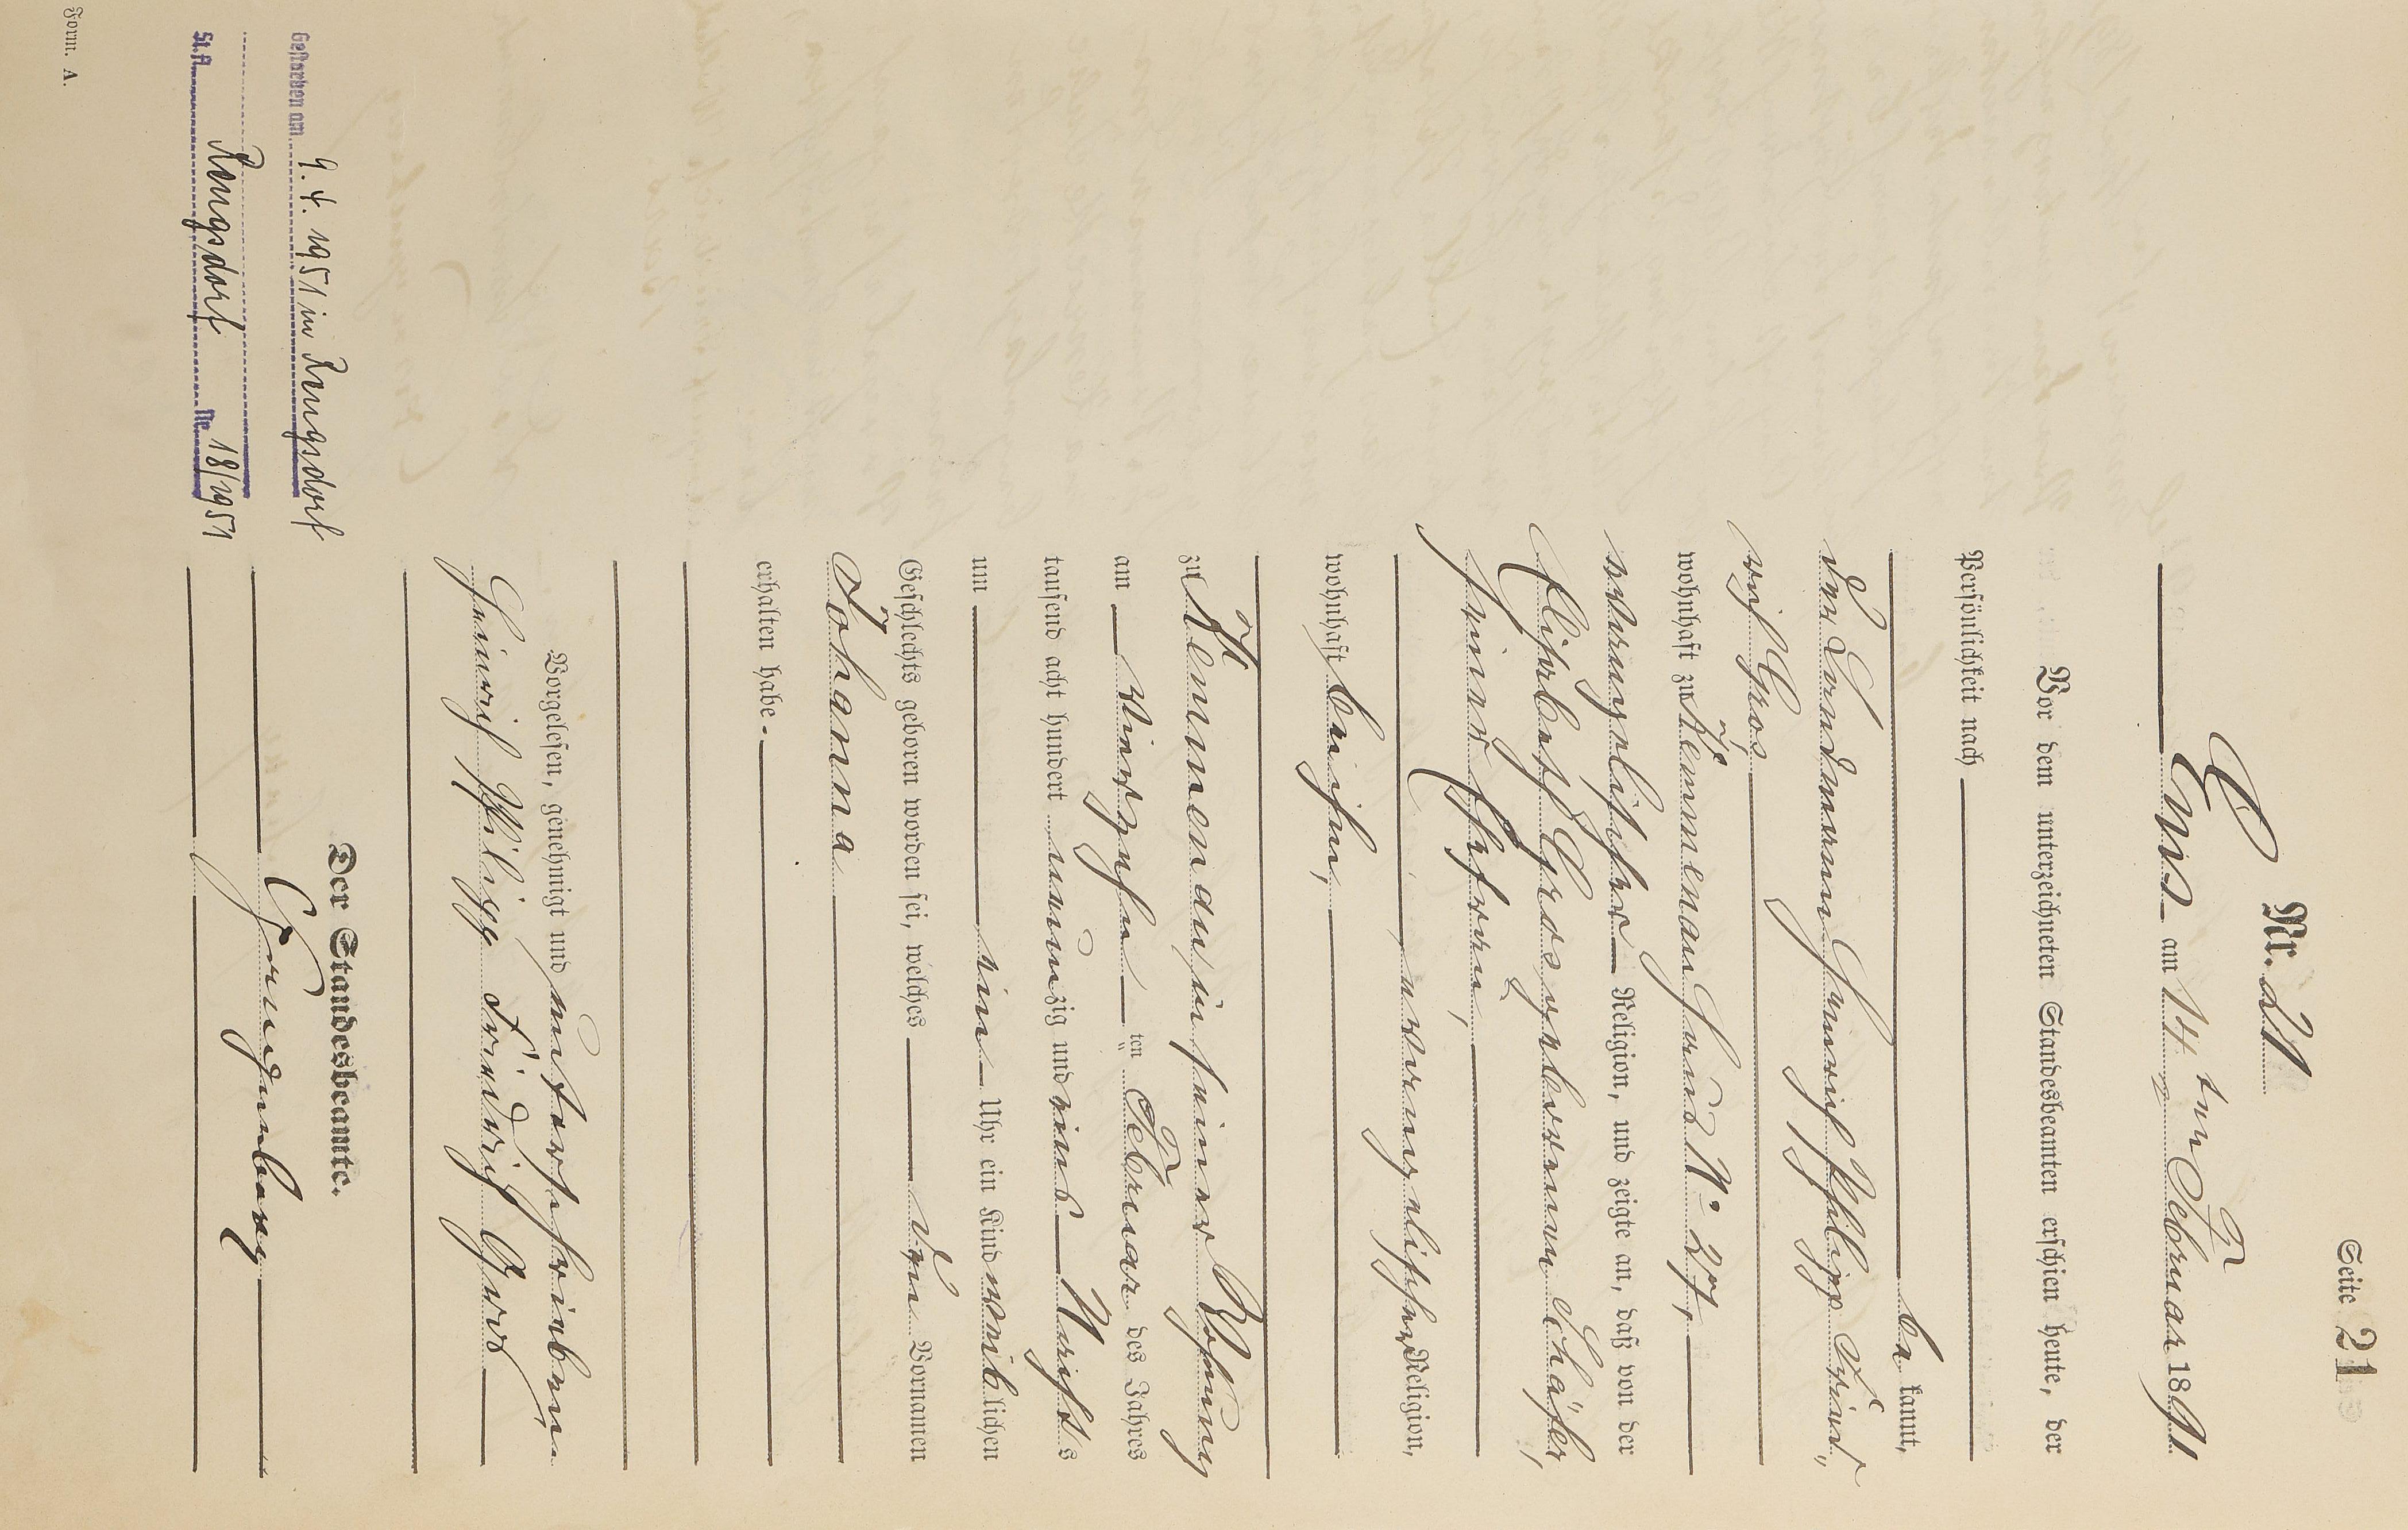 Seite 21
Nr. 21
C
Ems am 14ten Februar 1891
Vor dem unterzeichneten Standesbeamten erschien heute, der
Persönlichkeit nach
be kannt,
der Landmann Heinrich Philipp Fried„
rich Gros
wohnhaft zu Kemmenau Haus No 27,
evangelischer Religion, und zeigte an, daß von der
Elisabeth Gros geborenen Schäfer,
seiner Ehefrau,
evangelischer Religion,
wohnhaft bei ihm,
zu Kemmenau in seiner Wohnung
am vierzehn ten Februar des Jahres
tausend acht hundert neunzig und eins Nachts
um ein Uhr ein Kind weiblichen
Geschlechts geboren worden sei, welches den Vornamen
Johanna
erhalten habe.
Vorgelesen, genehmigt und unterschrieben
Heinrich Philipp Friedrich Gros
Der Standesbeamte.
Gestorben am 9.4.1951 in Rengsdorf
St.A. Rengsdorf Nr. 18/1951
Form. A.